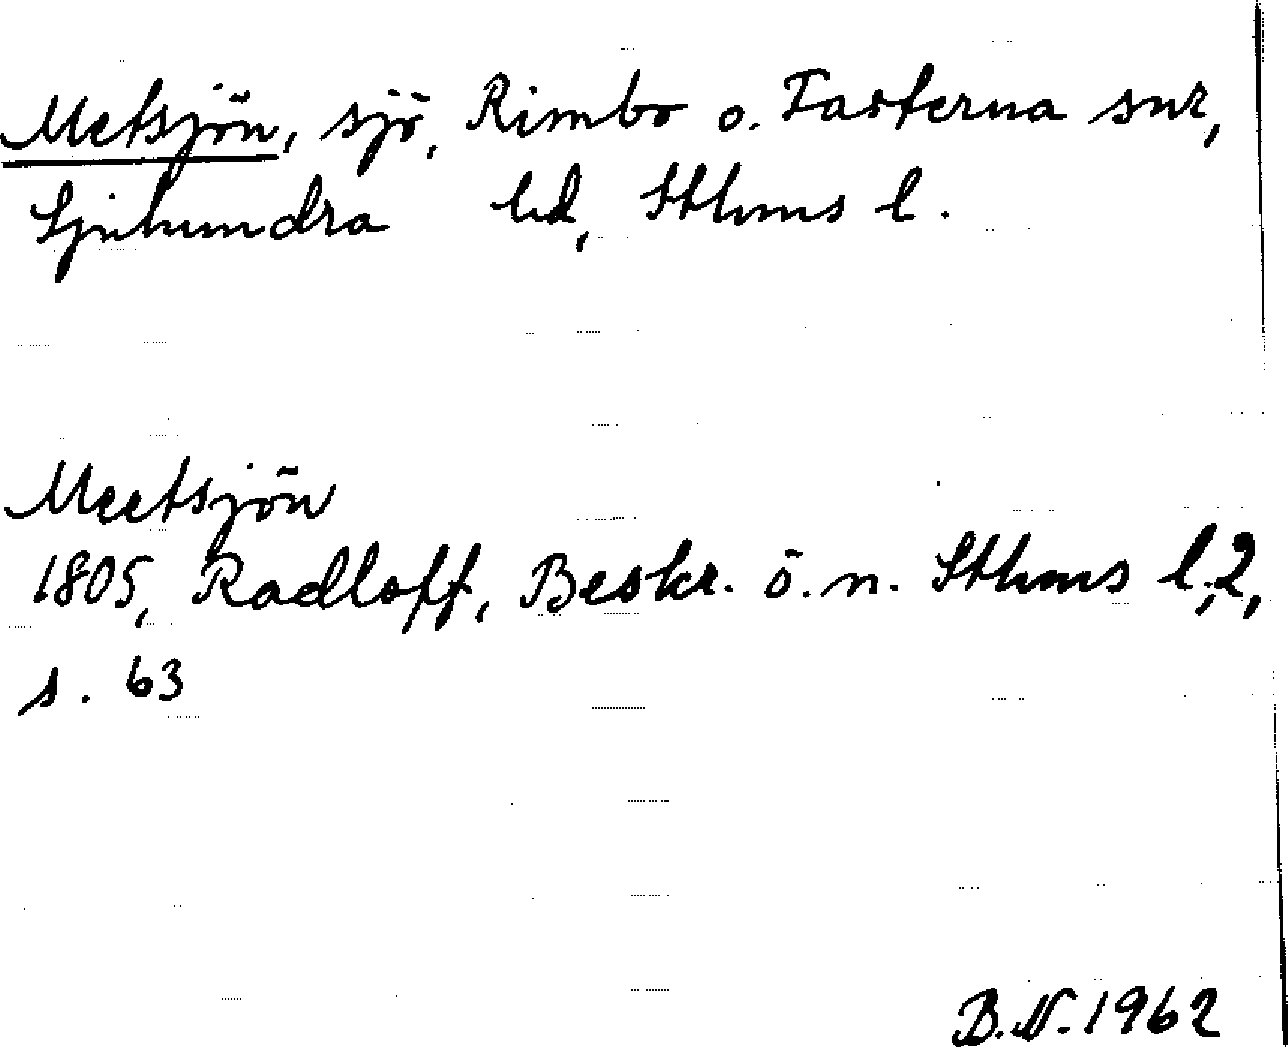 Metsjön, sjö, Rimbo o. Fasterna snr,
Sjuhundra hd, Sthms l.
Meetsjön
1805, Radloff, Beskr. ö. n. Sthms l, 2,
s. 63
B.N. 1962